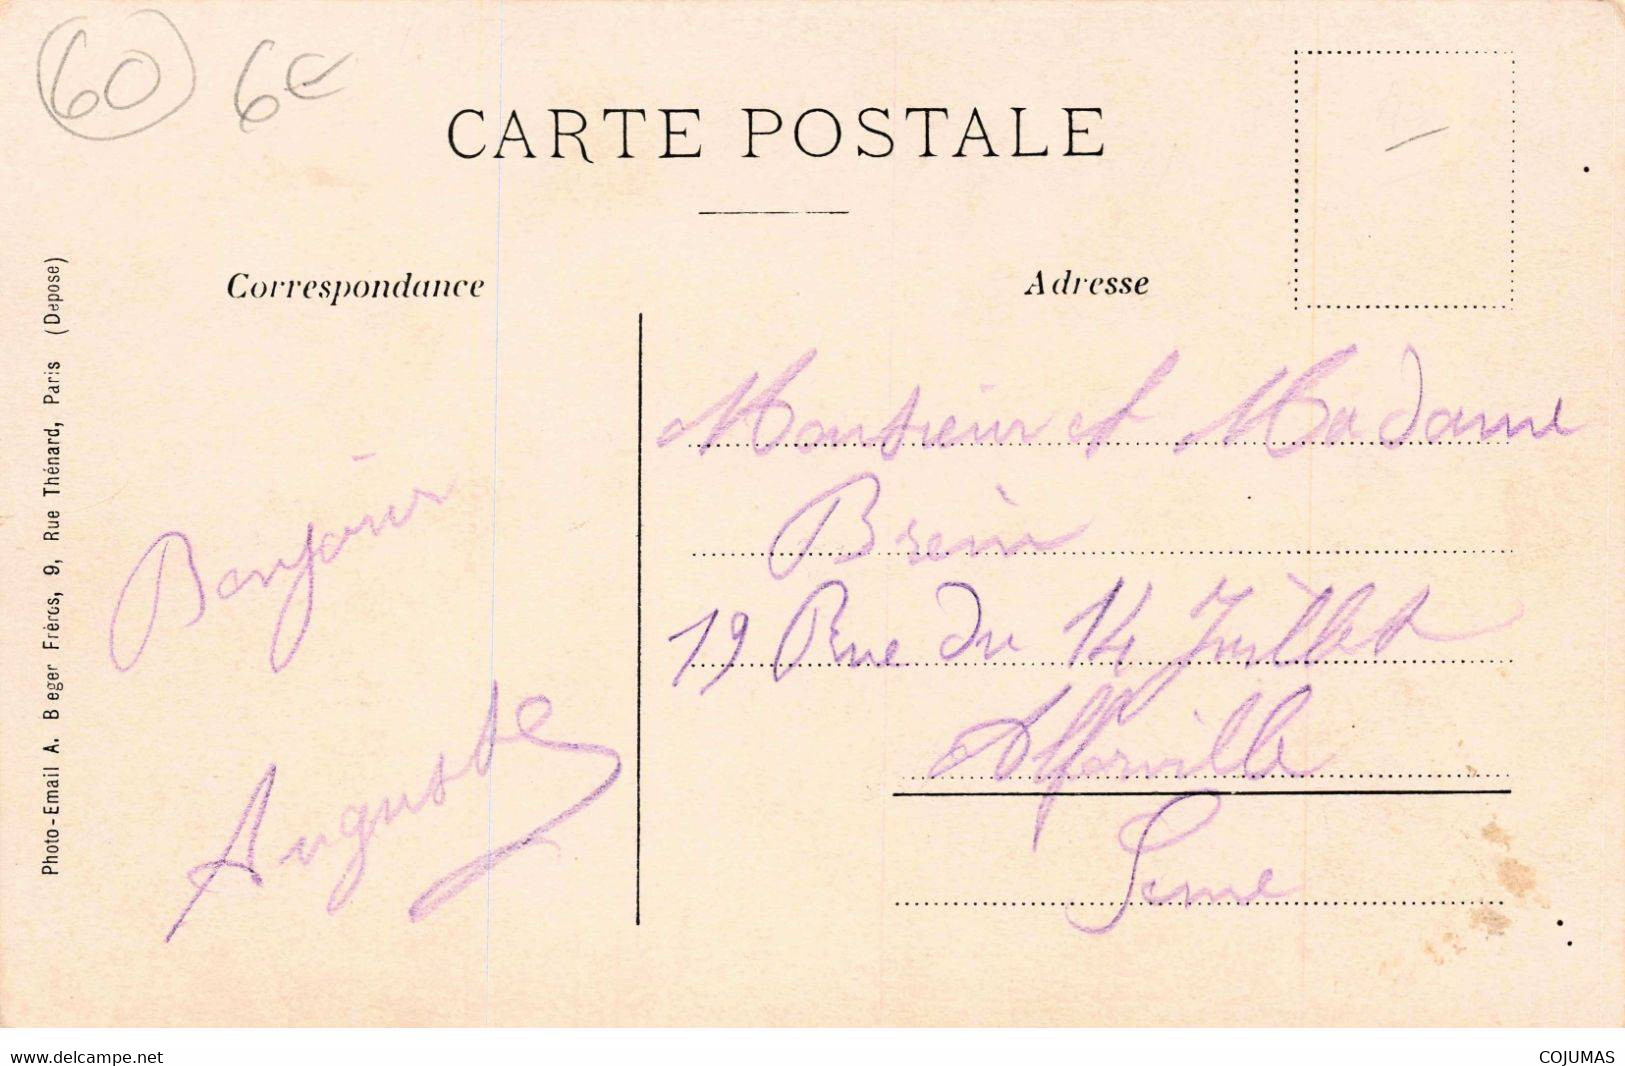 60 6€
CARTE POSTALE
Correspondance
Adresse
Photo-Email A. Breger Frères, 9, Rue Thénard, Paris (Déposé)
Bonjour
Auguste
Monsieur et Madame
19 Rue du 14 Juillet
Alforville
Seine
www.delcampe.net
COJUMAS